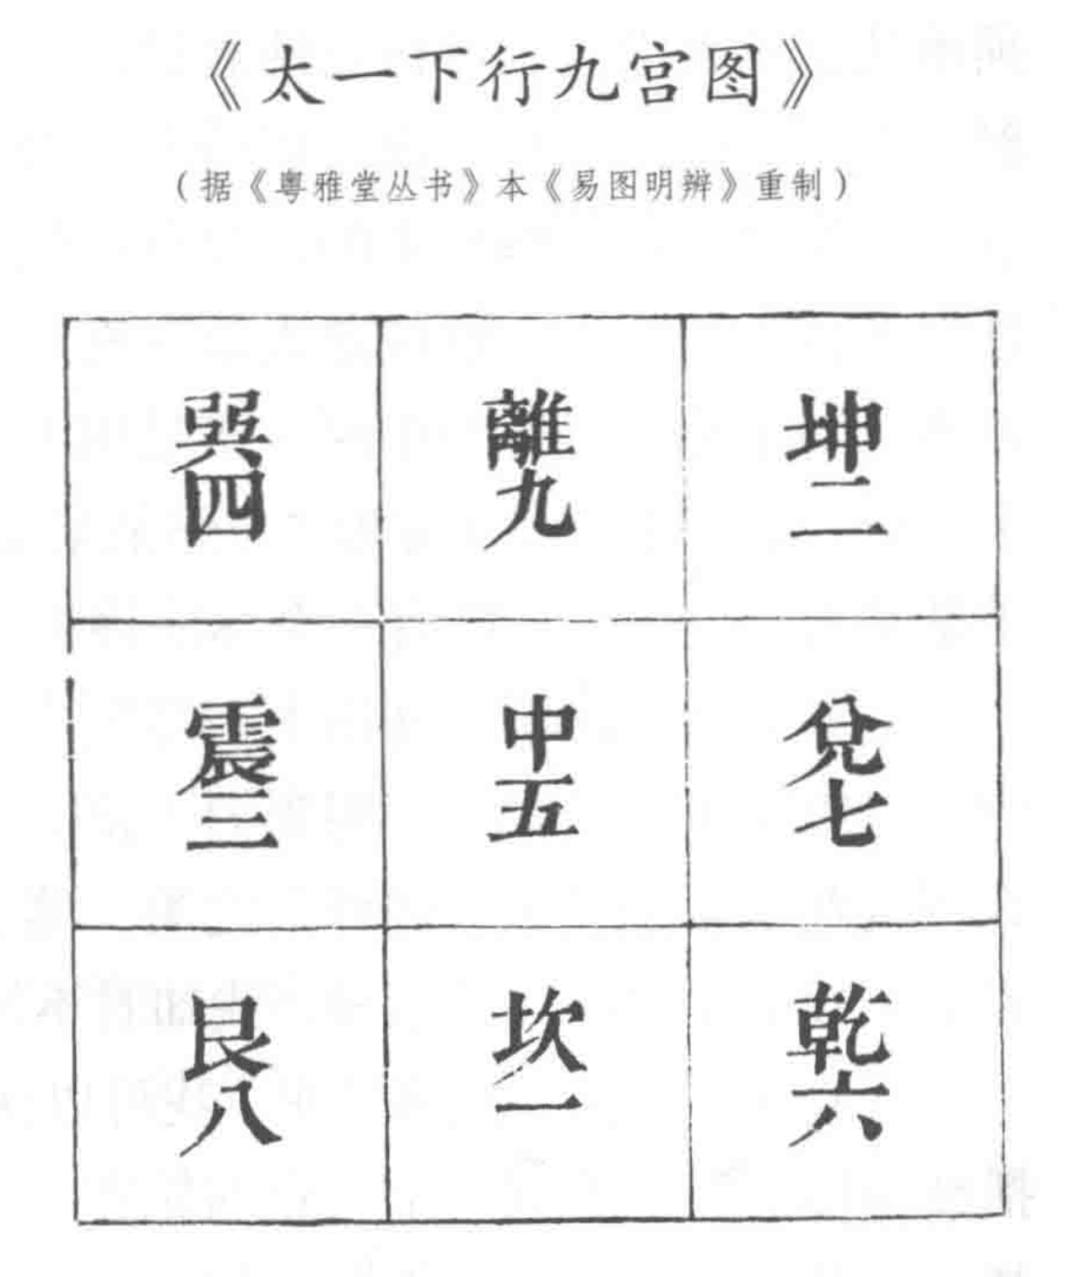 《太一下行九宫图》
（据《粤雅堂丛书》本《易图明辨》重制）
巽四 離九 坤二
震三 中五 兌七
艮八 坎一 乾六